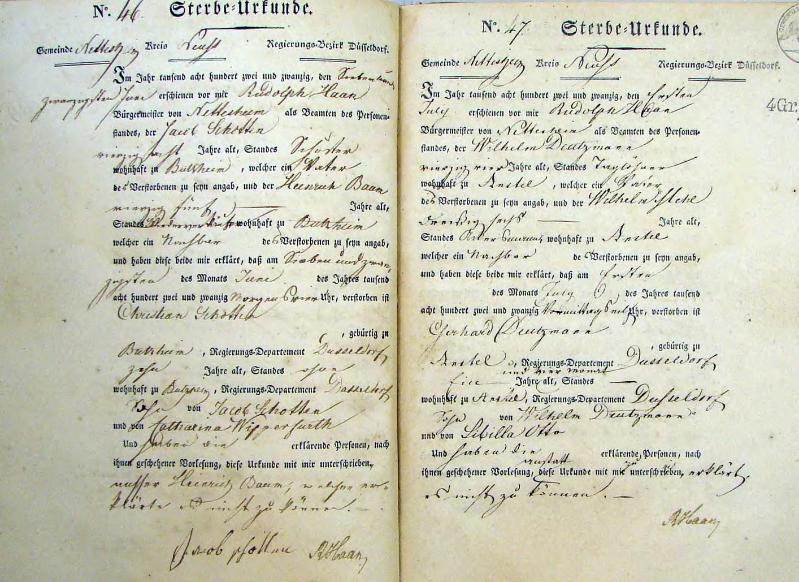 N<sup>o</sup>. 46 Sterbe-Urkunde.
Gemeinde Nettesheim Kreis Neuss Regierungs-Bezirk Düsseldorf.
Im Jahr tausend acht hundert zwei und zwanzig, den Sieben und
zwanzigsten Juni erschienen vor mir Rudolph Haan
Bürgermeister von Nettesheim als Beamten des Personen-
standes, der Jacob Schotten
vierzig acht Jahre alt, Standes Schuster
wohnhaft zu Butzheim, welcher ein Vater
des Verstorbenen zu seyn angab, und der Heinrich Baum
vierzig fünf Jahre alt,
Standes wohnhaft zu Butzheim
welcher ein Nachbar des Verstorbenen zu seyn angab,
und haben diese beide mir erklärt, daß am Sieben und zwan-
zigsten des Monats Juni des Jahres tausend
acht hundert zwei und zwanzig Morgens vier Uhr, verstorben ist
Christian Schotten
, gebürtig zu
Butzheim, Regierungs-Departement Dusseldorf
zehn Jahre alt, Standes ohne
wohnhaft zu Butzheim, Regierungs-Departement Dusseldorf
Sohn von Jacob Schotten
und von Catharina Wipperfurth
Und haben die erklärende Personen, nach
ihnen geschehener Vorlesung, diese Urkunde mit mir unterschrieben,
ausser Heinrich Baum, welcher er-
klärte es nicht zu können.
Jacob schotten RHaan
N<sup>o</sup>. 47 Sterbe-Urkunde.
Gemeinde Nettesheim Kreis Neuss Regierungs-Bezirk Düsseldorf.
4Gr.
Im Jahr tausend acht hundert zwei und zwanzig, den Ersten
July erschienen vor mir Rudolph Haan
Bürgermeister von Nettesheim als Beamten des Personen-
standes, der Wilhelm Deutzmann
vierzig vier Jahre alt, Standes Taglöhner
wohnhaft zu Anstel, welcher ein Vater
des Verstorbenen zu seyn angab, und der Wilhelm
dreißig sechs Jahre alt,
Standes Ackersmann, wohnhaft zu Anstel
welcher ein Nachbar des Verstorbenen zu seyn angab,
und haben diese beide mir erklärt, daß am Ersten
des Monats July des Jahres tausend
acht hundert zwei und zwanzig Vormittags Uhr, verstorben ist
Gerhard Deutzmann
, gebürtig zu
Anstel, Regierungs-Departement Dusseldorf
und vier Monat
Ein Jahre alt, Standes
wohnhaft zu Anstel, Regierungs-Departement Dusseldorf
Sohn von Wilhelm Deutzmann
und von Sibilla Otto
Und haben die erklärende Personen, nach
anstatt
ihnen geschehener Vorlesung, diese Urkunde mit mir zu unterschreiben, erklärt,
es nicht zu können.
RHaan